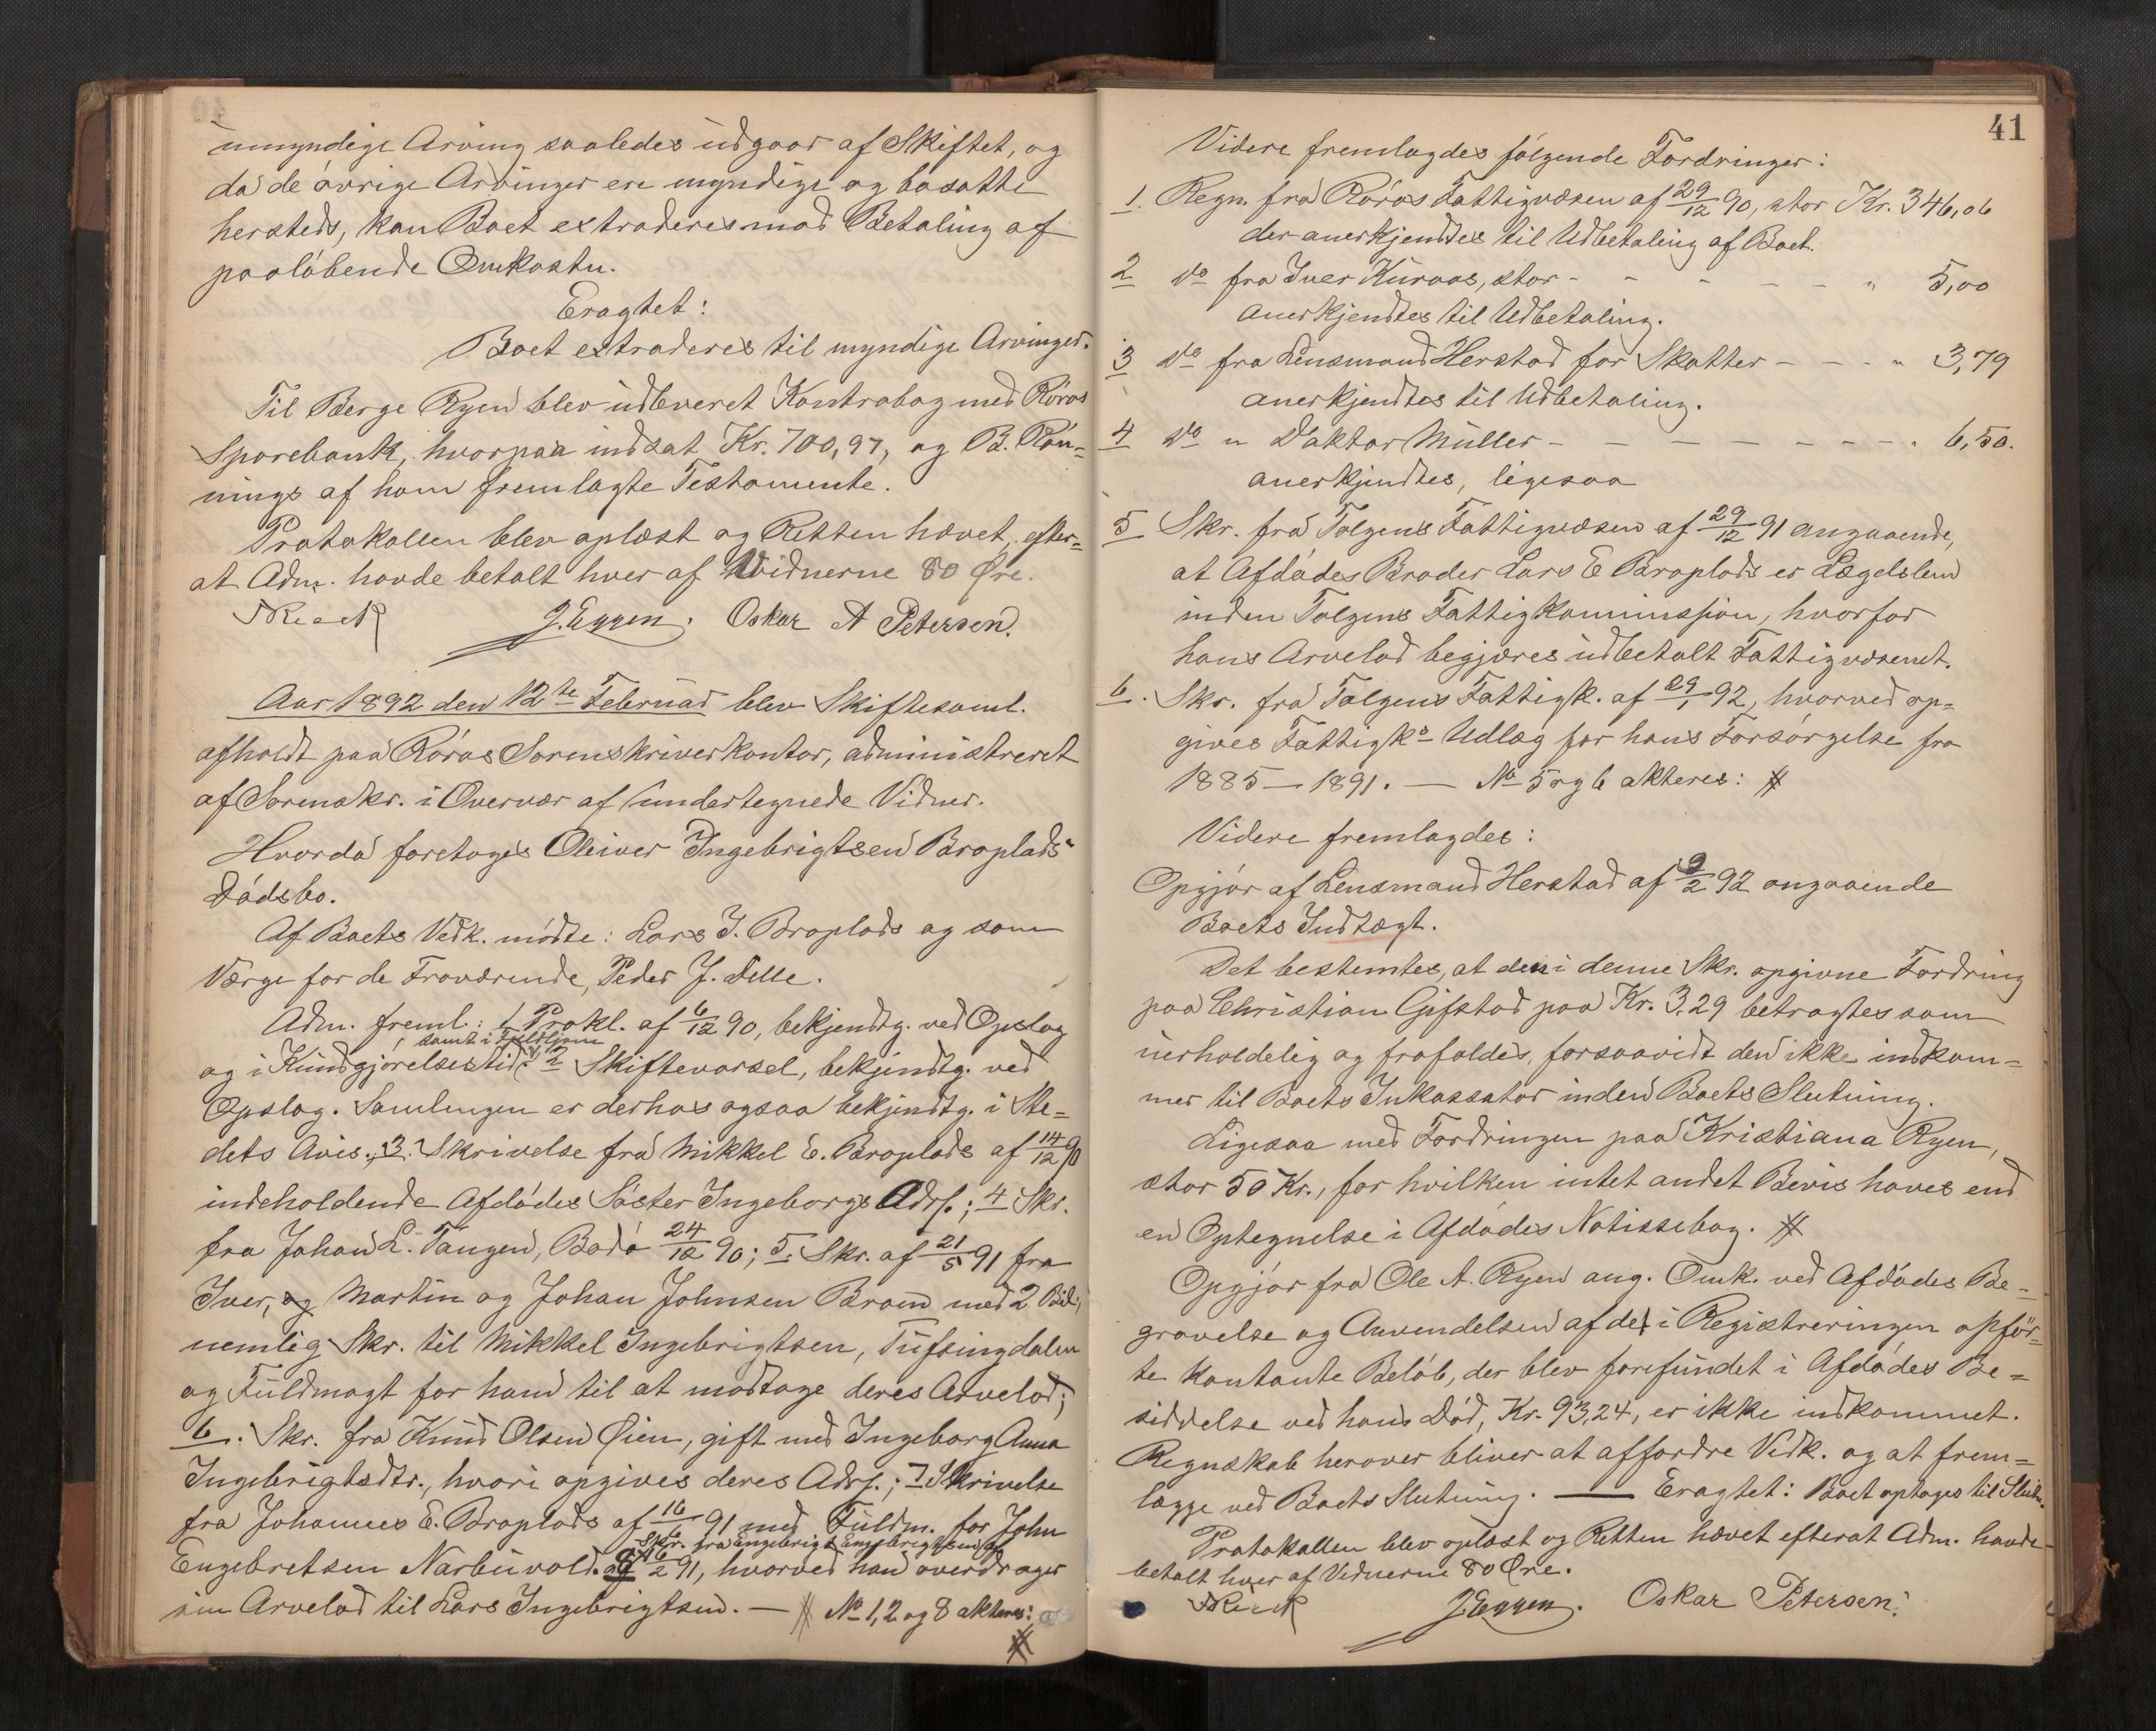 umyndige Arving saaledes udgaar af Skiftet, og
da de øvrige Arvinger ere myndige og bosatte
hersteds, kan Boet extraderes mod Betaling af
paaløbende Omkostn.
Eragtet:
Boet extraderes til myndige Arvinger.
Til Berge Ryen blev udleveret Kontrabog med Røros
Sparebank, hvorpaa indsat Kr. 700,97, og B. Røn=
nings af ham fremlagte Testamente.
Protokollen blev oplæst og Retten hævet, efter=
at Adm. havde betalt hver af Vidnerne 80 Øre.
J. Eggen. Oskar A Petersen.
Aar 1892 den 12te Februar blev Skiftesaml.
afholdt paa Røros Sorenskriverkontor, administreret
af Sorenskr. i Overvær af undertegnede Vidner.
Hvorda foretoges Oliver Ingebrigtsen Broplads
Dødsbo.
Af Boets Vedk. mødte: Lars I. Broplads og som
Værge for de Fraværende, Peder J. Delle.
Adm. freml: 1 Prokl. af 6/12 90, bekjendtg. ved Opslag
samt i Fjeldljom
og i Kundgjørelsestid; 2 Skiftevarsel, bekjendtg. ved
Opslag. Samlingen er derhos ogsaa bekjendtg. i Ste=
dets Avis; 3. Skrivelse fra Mikkel E. Broplads af 14/12 90
indeholdende Afdødes Søster Ingeborgs Adrs.; 4 Skr.
fra Johan L. Tangen, Bodø 24/12 90; 5. Skr. af 21/5 91 fra
Iver, og Martin og Johan Johnsen Broen med 2 Bil;
nemlig Skr. til Mikkel Ingebrigtsen, Tufsingdalen
og Fuldmagt for ham til at modtage deres Arvelod;
6. Skr. fra Knud Olsen Øien, gift med Ingeborg Anna
Ingebrigtsdtr., hvori opgives deres Adrs.; 7 Skrivelse
fra Johannes E. Broplads af 16/6 91 med Fuldm. for John
Skr. fra Engebrigt Engebrigtsen af
Engebretsen Narbuvold. og 16/2 91, hvorved han overdrager
sin Arvelod til Lars Ingebrigtsen. — # No 1, 2 og 8 akteres:
#
41
Videre fremlagdes følgende Fordringer:
1. Regn. fra Røros Fattigvæsen af 29/12 90, stor Kr. 346,06
der anerkjendtes til Udbetaling af Boet.
2 do fra Iver Kuraas, stor - - - - - - " 5,00
anerkjendtes til Udbetaling.
3 do fra Lensmand Herstad for Skatter - - - " 3,79
anerkjendtes til Udbetaling.
4 do " Doktor Müller - - - - - - - - " 6,50.
anerkjendtes, ligesaa
5 Skr. fra Tolgens Fattigvæsen af 29/12 91 angaaende,
at Afdødes Broder Lars E Broplads er Lægdslem
inden Tolgens Fattigkommission, hvorfor
hans Arvelod begjæres udbetalt Fattigvæsenet.
6. Skr. fra Tolgens Fattigk. af 29/1 92, hvorved op=
gives Fattigks Udlæg for hans Forsørgelse fra
1885 — 1891. — No 5 og 6 akteres: #
Videre fremlagdes:
Opgjør af Lensmand Herstad af 9/2 92 angaaende
Boets Indtægt.
Det bestemtes, at den i denne Skr. opgivne Fordring
paa Christian Gifstad paa Kr. 3.29 betragtes som
uerholdelig og frafaldes, forsaavidt den ikke indkom=
mer til Boets Inkassator inden Boets Slutning.
Ligesaa med Fordringen paa Kristiana Ryen,
stor 50 Kr., for hvilken intet andet Bevis haves end
en Optegnelse i Afdødes Notissebog. #
Opgjør fra Ole A. Ryen ang. Omk. ved Afdødes Be=
gravelse og Anvendelsen af det i Registreringen opfør=
te kontante Beløb, der blev forefundet i Afdødes Be=
siddelse ved hans Død, Kr. 93,24, er ikke indkommet.
Regnskab herover bliver at affordre Vedk. og at frem=
lægge ved Boets Slutning. — Eragtet: Boet optages til Slutn.
Protokollen blev oplæst og Retten hævet efterat Adm. havde
betalt hver af Vidnerne 80 Øre.
J. Eggen. Oskar Petersen.